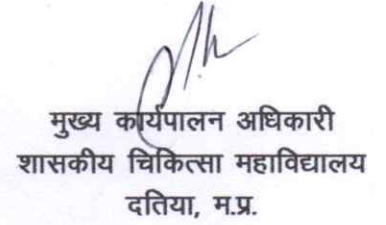 मुख्य कार्यपालन अधिकारी
शासकीय चिकित्सा महाविद्यालय
दतिया, म.प्र.